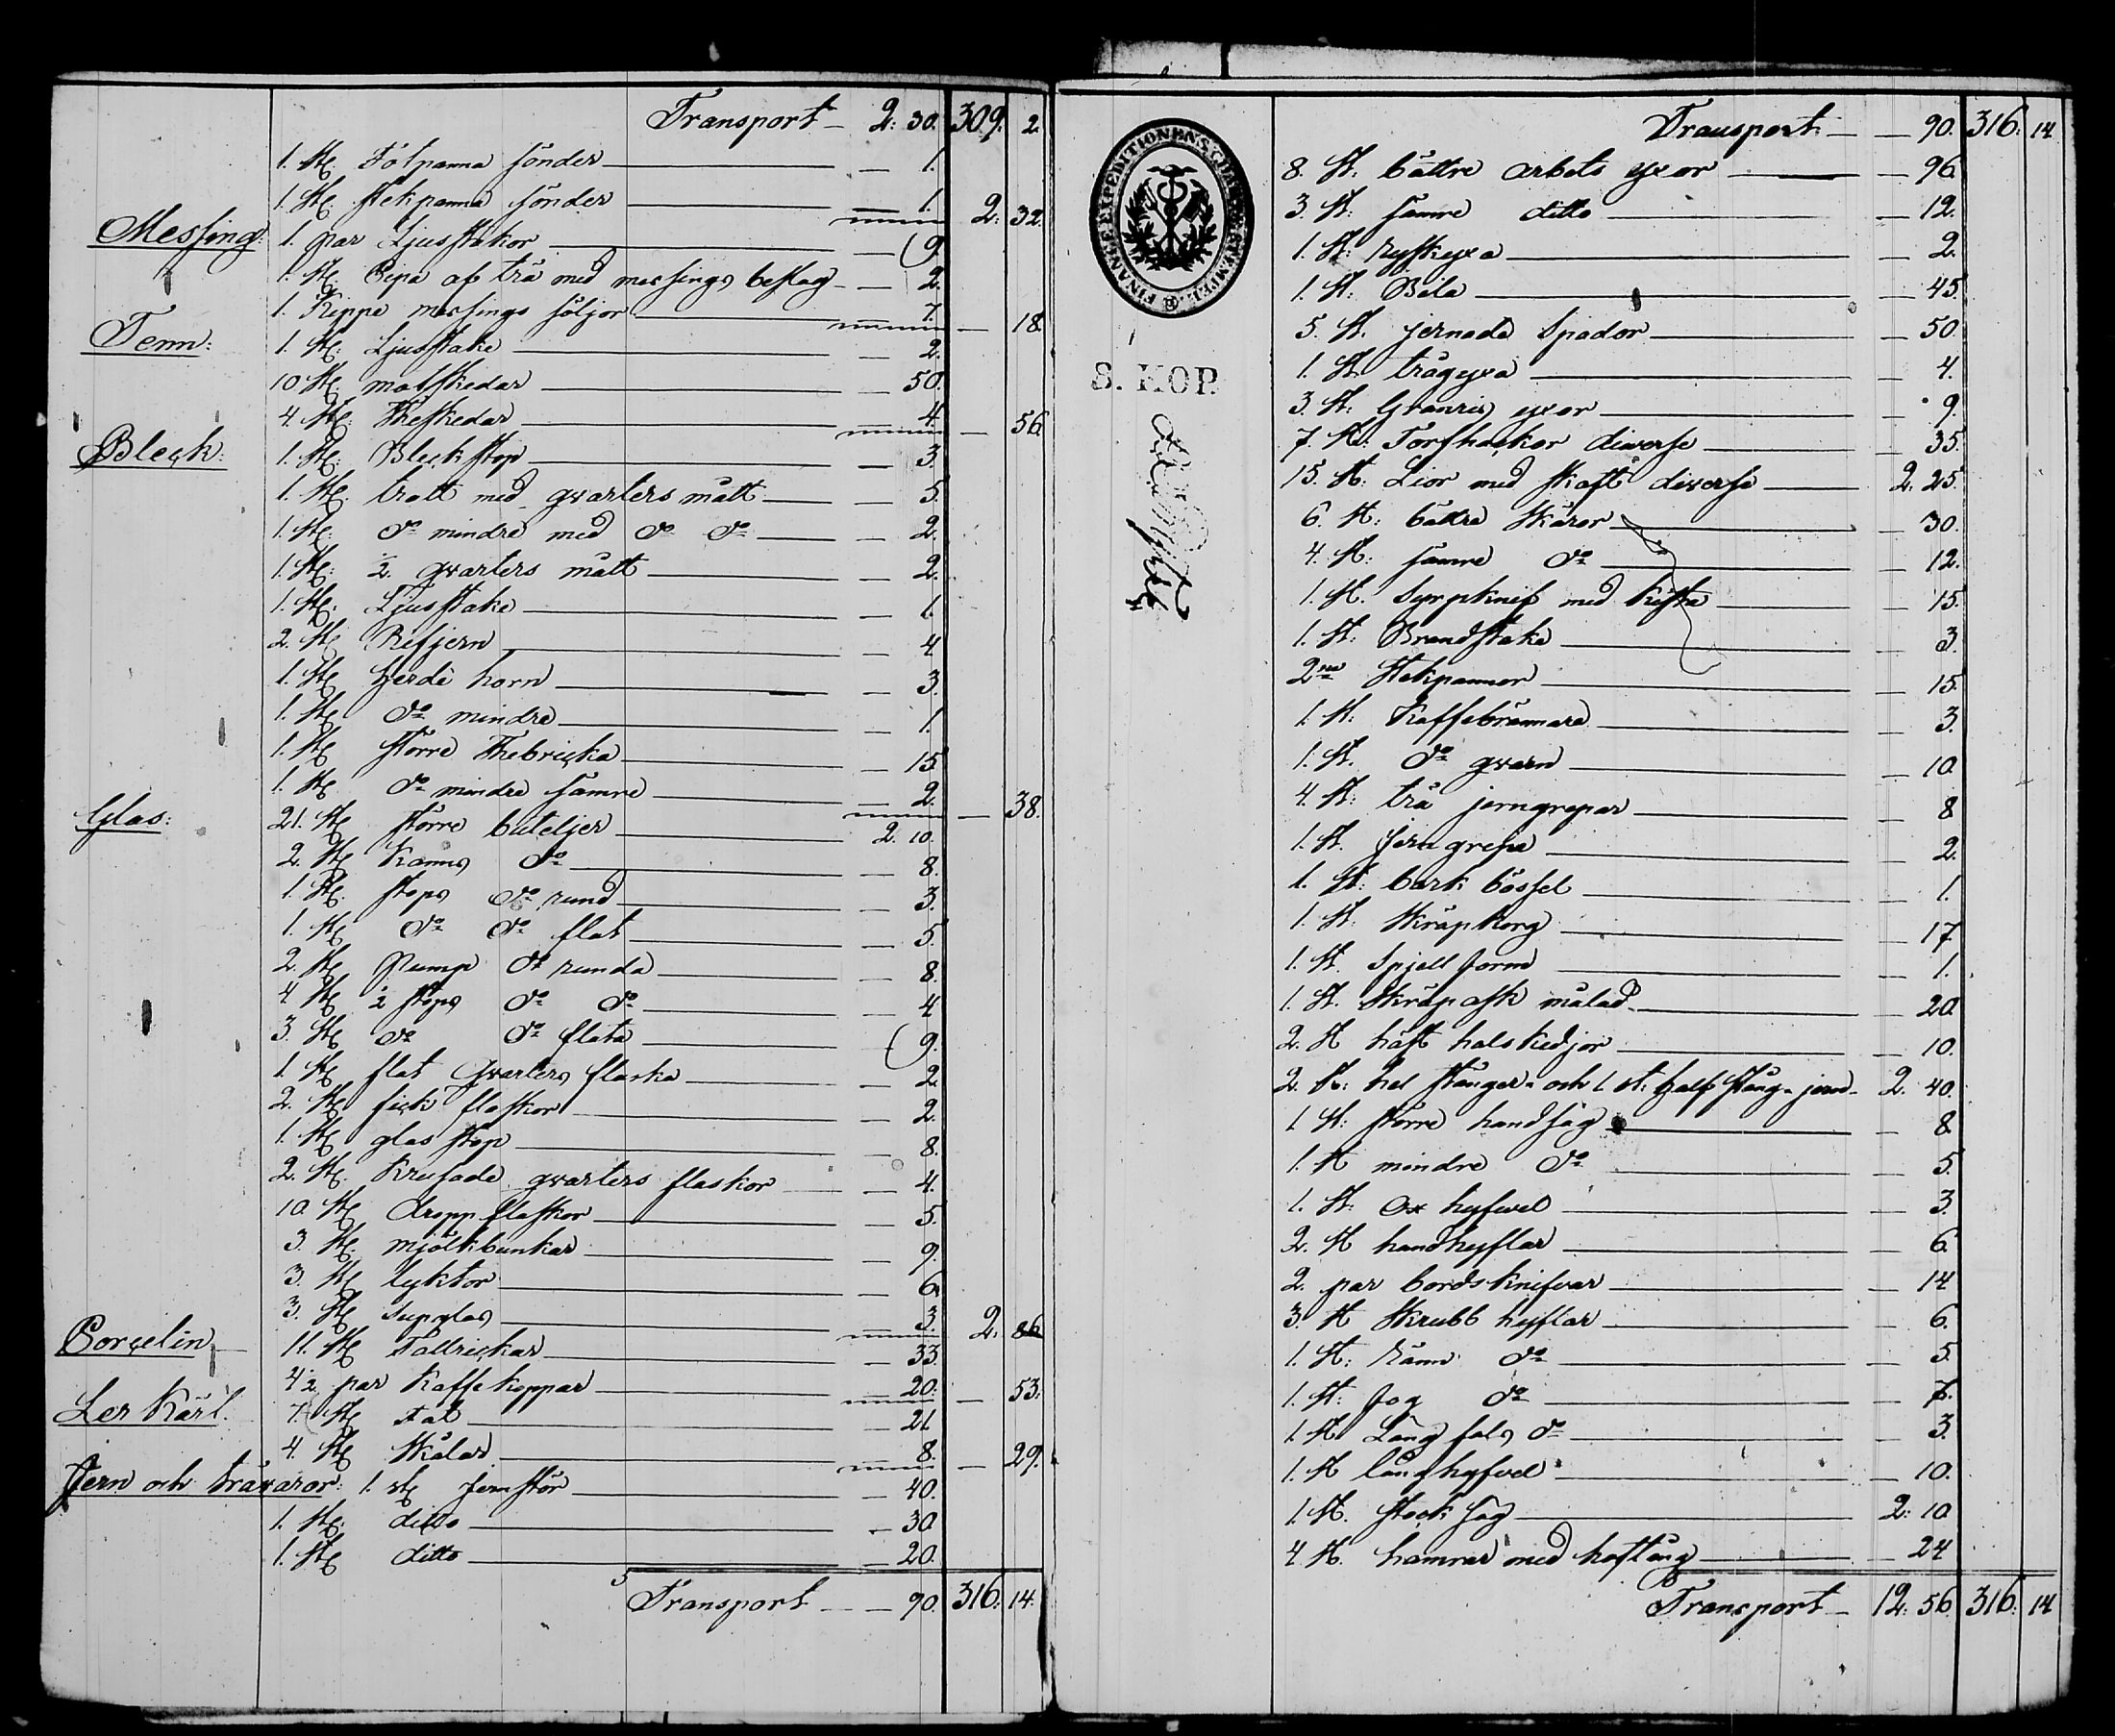 Transport — 2: 30. 309. 2.
1. St. Fotpanna sönder — 1.
1. St. stekpanna sönder — 1. 2: 32.
Messing: 1. par Ljusstakor — 9.
1. St. Pipa af trä med messings beslag — 2.
1. Kippa messings söljor — 7. — 18.
Tenn: 1. St. Ljusstake — 2.
10 St. matskedar — 50.
4. St. Theskedar — 4. — 56.
Bleck: 1. St. Bleck stop — 3.
1. St. tratt med qvarters mått — 5.
1. St. do mindre med do do — 2.
1. St. 2. qvarters mått — 2.
1. St. Ljusstake — 1.
2. St. Refjern — 4
1. St. herde horn — 3.
1. St. do mindre — 1.
1. St. större Thebricka — 15.
1. St. do mindre sämre — 2. — 38.
Glas: 21. St. större buteljer — 2. 10.
2. St. Kanns do — 8.
1. St. stops do rund — 3.
1. St. do do flat — 5.
2. St. Pump do runda — 8.
4. St. ½ stops do do — 4
3. St. do do flata — 9.
1. St. flat qvarters flaska — 2
2. St. fick flaskor — 2.
1. St. glas stop — 8.
2. St. Krusade qvarters flaskor — 4.
10. St. dropp flaskor — 5.
3. St. mjölkbunkar — 9.
3. St. lyktor — 6.
3. St. supglas — 3. 2. 86.
Porcelin 11. St. Tallrickar — 33.
4½ par Kaffekoppar — 20. — 53.
Ler Kärl. 7. St. Fat — 21
4. St. Skålar — 8. — 29.
Jern och trävaror: 1. st. Jernstör — 40.
1. St. ditto — 30
1. St. ditto — 20.
Transport — 90. 316: 14.
FINANCE EXPEDITIONENS CHARTÆ STEMPEL.
8. KOP.
Transport — 90. 316: 14
8. St. bättre arbets yxor — 96
3. St. sämre ditto — 12.
1. St. ryskyxa — 2.
1. St. Bila — 45.
5. St. jernade Spador — 50.
1. St. trågyxa — 4.
3. St. Granris yxor — 9.
7. St. Torfhackor diverse — 35.
15. St. Lior med skaft diverse — 2. 25.
6. St. bättre Skäror — 30.
4. St. sämre do — 12.
1. St. Syrpknif med kista — 15.
1. St. Brandstake — 3.
2ne Stekpannor — 15.
1. St. Kaffebrännare — 3.
1. St. do qvarn — 10
4. St. trä jerngrepar — 8
1. St. Jerngrepa — 2.
1. St. bark bössel — 1.
1. St. Skräpkorg — 17
1. St. Spjell form — 1.
1. St. Skräpask målad — 20
2. St häst halskedjor — 10.
2. St. hel stänger och 1 st: half stång jern — 2. 40.
1 St. större handsåg — 8
1. St mindre do — 5.
1. St. Ox hyfvel — 3.
2. St handhyflar — 6.
2. par bordsknifvar — 14
3. St Skrubb hyflar — 6.
1. St. Ränn do — 5.
1. St. Fog do — 7.
1. St Lång fals do — 3.
1. St långhyfvel — 10.
1. St. stock såg — 2: 10
4 St. hamrar med hoftång — 24
Transport — 12: 56 316: 14